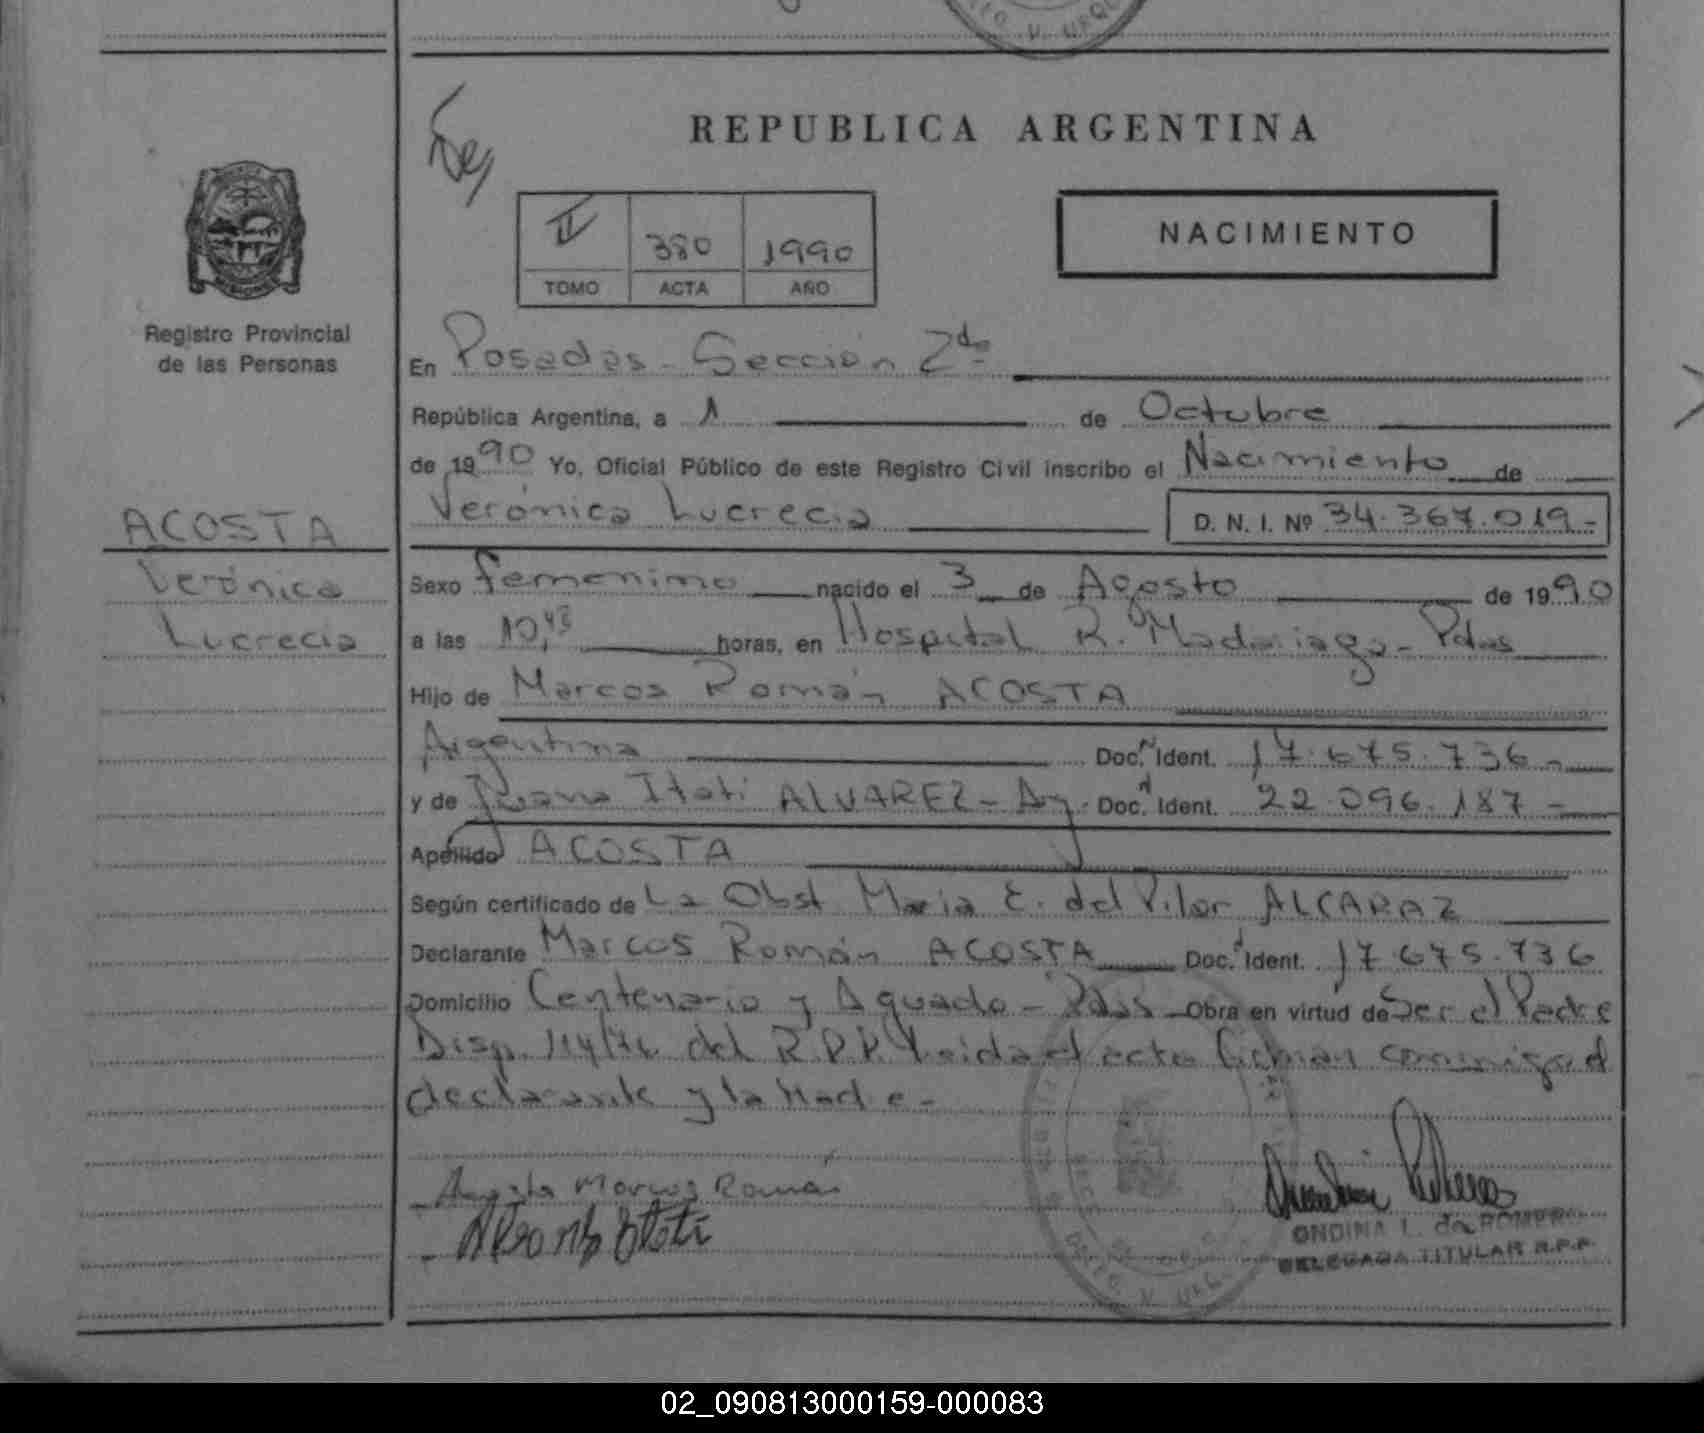 REPUBLICA ARGENTINA
II 380 1990
TOMO ACTA AÑO
NACIMIENTO
Registro Provincial
de las Personas
En Posadas - Sección 2da
República Argentina, a 1 de Octubre
de 1990 Yo, Oficial Público de este Registro Civil inscribo el Nacimiento de
Verónica Lucrecia D. N. I. Nº 34.367.019-
ACOSTA
Verónica
Lucrecia
Sexo femenino nacido el 3 de Agosto de 1990
a las 10,43 horas, en Hospital R. Madariaga - Pdas
Hijo de Marcos Román ACOSTA
Argentina Doc. Ident. 17.675.736-
y de Juana Itatí ALVAREZ - Arg. Doc. Ident. 22.096.187-
Apellido ACOSTA
Según certificado de La Obst María E. del Pilar ALCARAZ
Declarante Marcos Román ACOSTA Doc. Ident. 17.675.736
Domicilio Centenario y Aguado - Pdas Obra en virtud de Ser el Padre
Disp. 114/76 del R.P.P. Leída el acta firman conmigo el
declarante y la Madre-
Acosta Marcos Román
Itatí
ONDINA L. de ROMERO
DELEGADA TITULAR R.P.P.
02_090813000159-000083